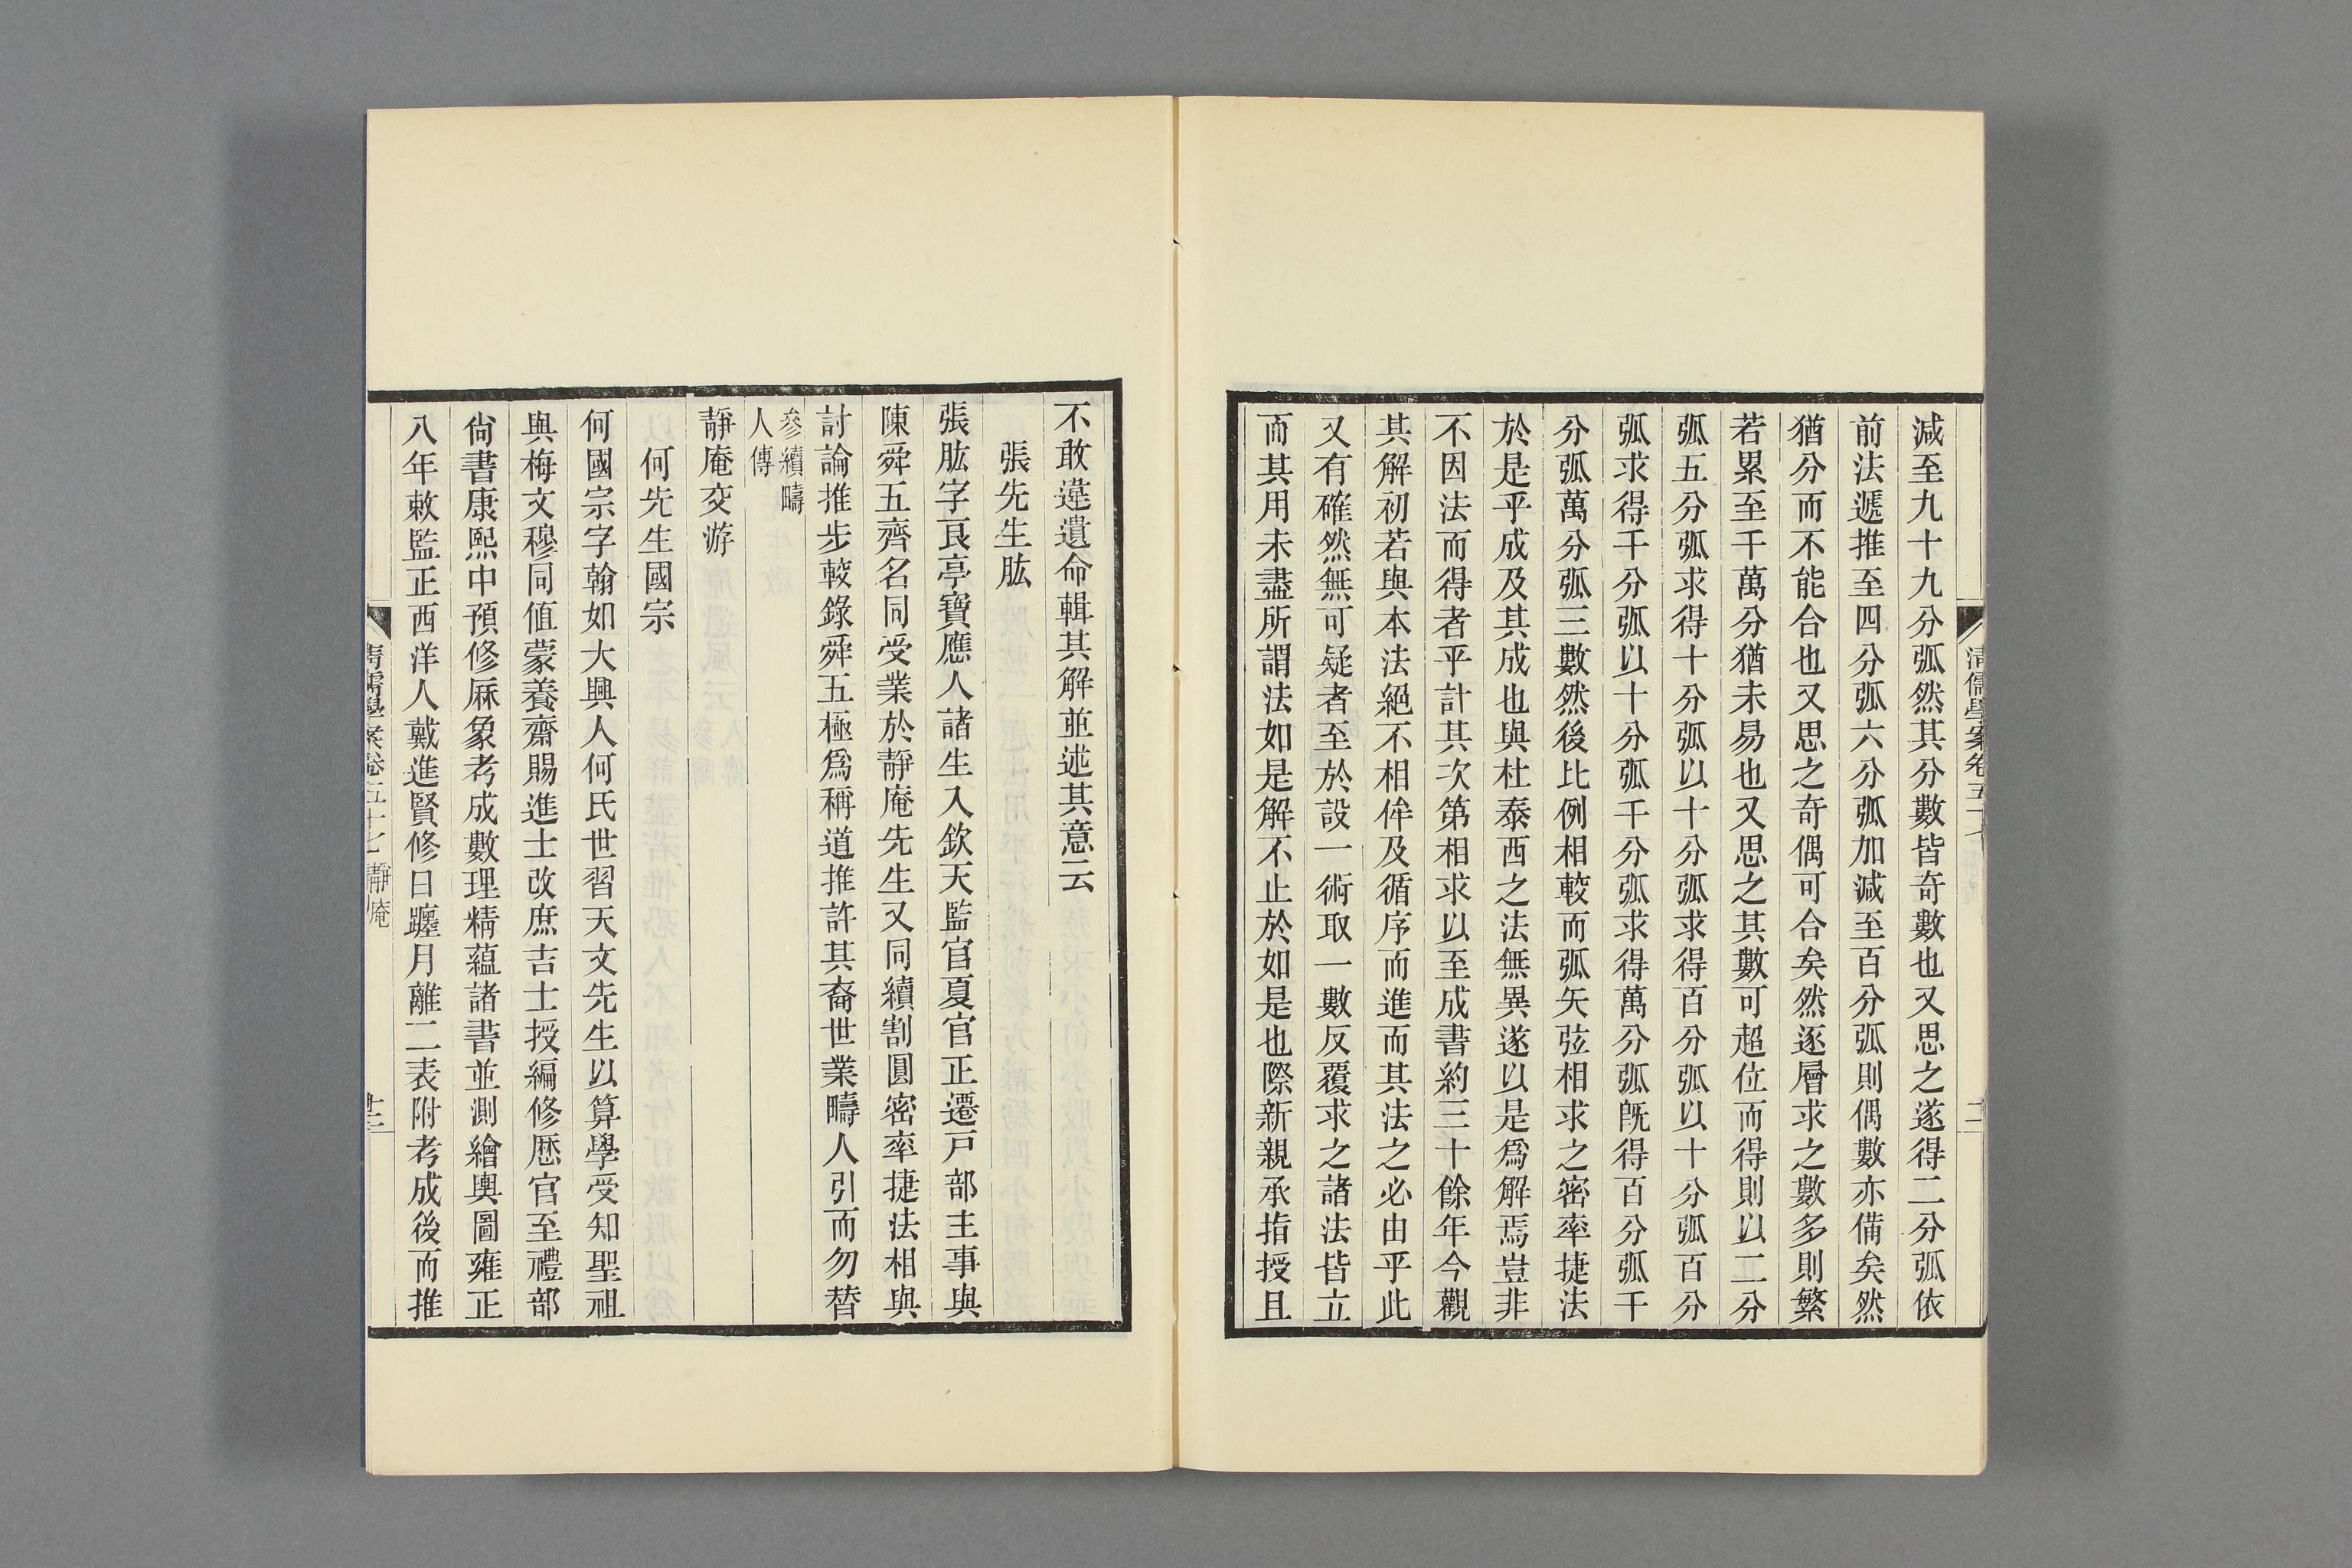 清儒學案卷五十七
十二
減至九十九分弧然其分數皆奇數也又思之遂得二分弧依
前法遞推至四分弧六分弧加減至百分弧則偶數亦備矣然
猶分而不能合也又思之奇偶可合矣然逐層求之數多則繁
若累至千萬分猶未易也又思之其數可超位而得則以二分
弧五分弧求得十分弧以十分弧求得百分弧以十分弧百分
弧求得千分弧以十分弧千分弧求得萬分弧旣得百分弧千
分弧萬分弧三數然後比例相較而弧矢弦相求之密率捷法
於是乎成及其成也與杜泰西之法無異遂以是爲解焉豈非
不因法而得者乎計其次第相求以至成書約三十餘年今觀
其解初若與本法絕不相侔及循序而進而其法之必由乎此
又有確然無可疑者至於設一術取一數反覆求之諸法皆立
而其用未盡所謂法如是解不止於如是也際新親承指授且
不敢違遺命輯其解並述其意云
張先生肱
張肱字艮亭寶應人諸生入欽天監官夏官正遷戸部主事與
陳舜五齊名同受業於靜庵先生又同續割圓密率捷法相與
討論推步較錄舜五極爲稱道推許其裔世業疇人引而勿替
參續疇
人傳
靜庵交游
何先生國宗
何國宗字翰如大興人何氏世習天文先生以算學受知聖祖
與梅文穆同値蒙養齋賜進士改庶吉士授編修厯官至禮部
尙書康熙中預修厤象考成數理精蘊諸書並測繪輿圖雍正
八年敕監正西洋人戴進賢修日躔月離二表附考成後而推
清儒學案卷五十七 靜庵